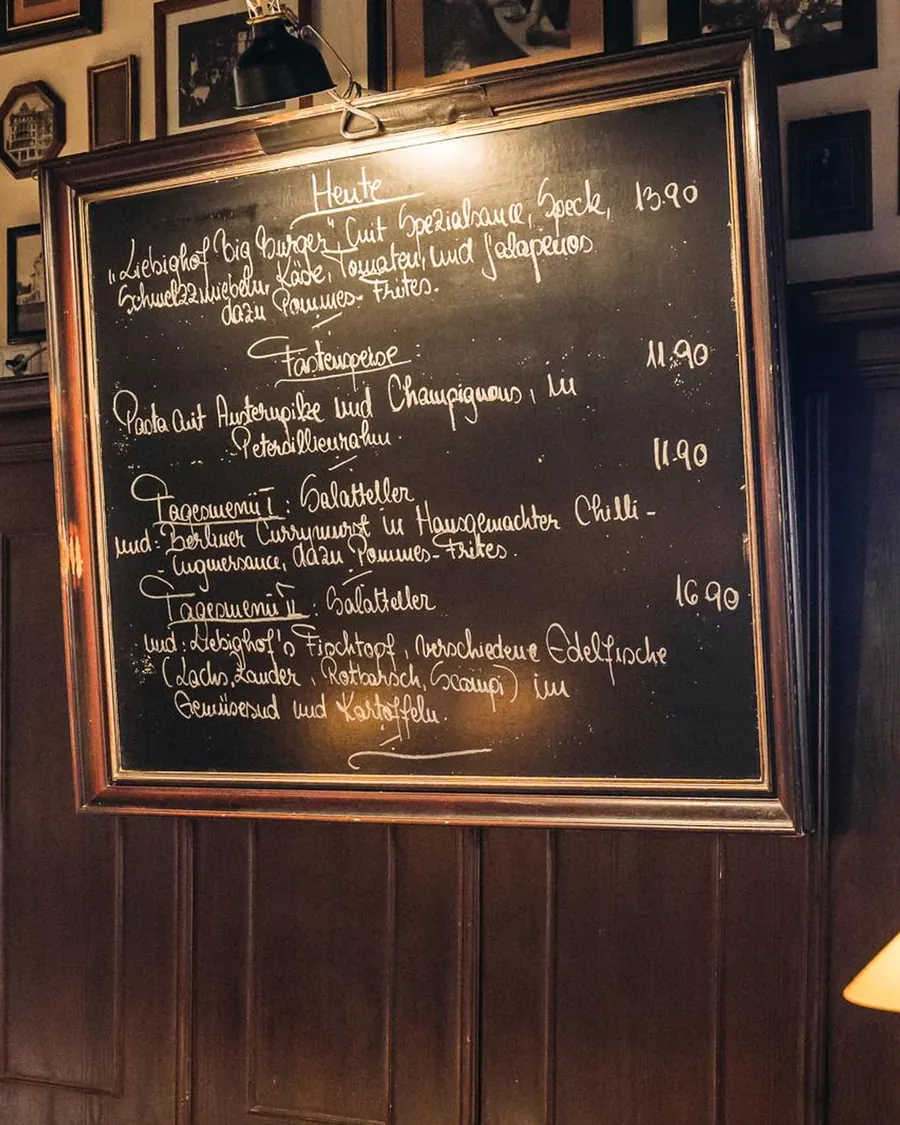 Heute
„Liebighof Big Burger" mit Spezialsauce, Speck, 13.90
Schmelzzwiebeln, Käse, Tomaten, und Jalapenos
dazu Pommes-Frites.
Fastenspeise:
11.90
Pasta mit Austernpilze und Champignons, in
Petersillienrahm.
11.90
Tagesmenü I: Salatteller
und: Berliner Currywurst in Hausgemachter Chilli-
- Ingwersauce, dazu Pommes-Frites.
Tagesmenü II: Salatteller 16.90
und: Liebighof's Fischtopf, verschiedene Edelfische
(Lachs, Zander, Rotbarsch, Scampi) im
Gemüsesud und Kartoffeln.